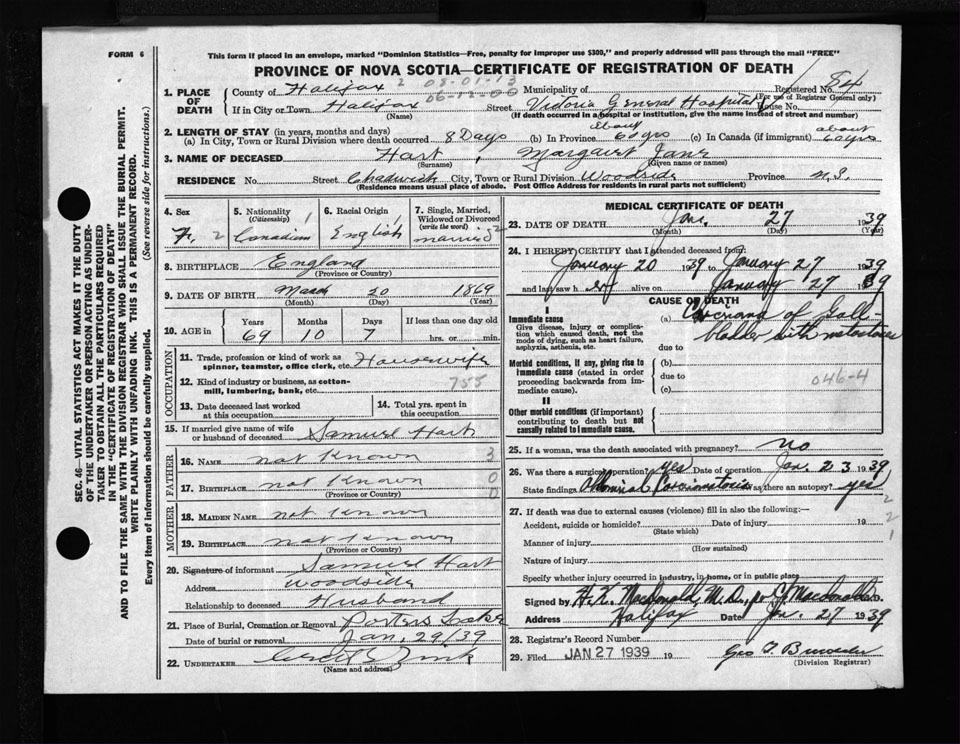 FORM 6
This form if placed in an envelope, marked "Dominion Statistics—Free, penalty for improper use $300," and properly addressed will pass through the mail "FREE"
PROVINCE OF NOVA SCOTIA—CERTIFICATE OF REGISTRATION OF DEATH
1. PLACE OF DEATH County of Halifax 2 08-01-13 Municipality of Registered No. 84
06-12-00 (For use of Registrar General only)
If in City or Town Halifax Street Victoria General Hospital House No.
(Name) (If death occurred in a hospital or institution, give the name instead of street and number)
2. LENGTH OF STAY (in years, months and days)
(a) In City, Town or Rural Division where death occurred 8 Days (b) In Province about 60 yrs (c) In Canada (if immigrant) about 60 yrs
3. NAME OF DECEASED Hart, Margaret Jane
(Surname) (Given name or names)
RESIDENCE No. Street Chadwick City, Town or Rural Division Woodside Province N.S.
(Residence means usual place of abode. Post Office Address for residents in rural parts not sufficient)
4. Sex F. 2
5. Nationality (Citizenship) Canadian 1
6. Racial Origin English 1
7. Single, Married, Widowed or Divorced (write the word) married 2
8. BIRTHPLACE England
(Province or Country)
9. DATE OF BIRTH March 20 1869
(Month) (Day) (Year)
10. AGE in Years Months Days If less than one day old
69 10 7 hrs. or min.
OCCUPATION
11. Trade, profession or kind of work as spinner, teamster, office clerk, etc. Housewife
12. Kind of industry or business, as cotton-mill, lumbering, bank, etc. 755
13. Date deceased last worked at this occupation
14. Total yrs. spent in this occupation
15. If married give name of wife or husband of deceased Samuel Hart
FATHER
16. NAME not known 3
17. BIRTHPLACE not known 0
(Province or Country) 0
MOTHER
18. MAIDEN NAME not known
19. BIRTHPLACE not known
(Province or Country)
20. Signature of informant Samuel Hart
Address Woodside
Relationship to deceased Husband
21. Place of Burial, Cremation or Removal Porters Lake
Date of burial or removal Jan, 29/39
22. UNDERTAKER Zink
(Name and address)
MEDICAL CERTIFICATE OF DEATH
23. DATE OF DEATH Jan. 27 1939
(Month) (Day) (Year)
24. I HEREBY CERTIFY that I attended deceased from:
January 20 1939 to January 27 1939
and last saw her alive on January 27 1939
CAUSE OF DEATH
I
Immediate cause (a) Carcinoma of Gall
Give disease, injury or complication which caused death, not the mode of dying, such as heart failure, asphyxia, asthenia, etc. bladder with metastases
due to
Morbid conditions, if any, giving rise to immediate cause (stated in order proceeding backwards from immediate cause). (b)
due to 046-4
(c)
II
Other morbid conditions (if important) contributing to death but not causally related to immediate cause.
25. If a woman, was the death associated with pregnancy? no
26. Was there a surgical operation? yes Date of operation Jan. 23 1939
State findings Abdominal Carcinomatosis Was there an autopsy? yes
27. If death was due to external causes (violence) fill in also the following:— 2
Accident, suicide or homicide? Date of injury 19 2
(State which) 1
Manner of injury
(How sustained)
Nature of injury
Specify whether injury occurred in industry, in home, or in public place
Signed by H. K. Macdonald, M.D., MacDonald
Address Halifax Date Jan. 27 1939
28. Registrar's Record Number
29. Filed JAN 27 1939 19 Geo
(Division Registrar)
SEC. 46—VITAL STATISTICS ACT MAKES IT THE DUTY
OF THE UNDERTAKER OR PERSON ACTING AS UNDER-
TAKER TO OBTAIN ALL THE PARTICULARS REQUIRED
IN THE "CERTIFICATE OF REGISTRATION OF DEATH"
AND TO FILE THE SAME WITH THE DIVISION REGISTRAR WHO SHALL ISSUE THE BURIAL PERMIT.
WRITE PLAINLY WITH UNFADING INK. THIS IS A PERMANENT RECORD.
Every item of information should be carefully supplied. (See reverse side for instructions.)